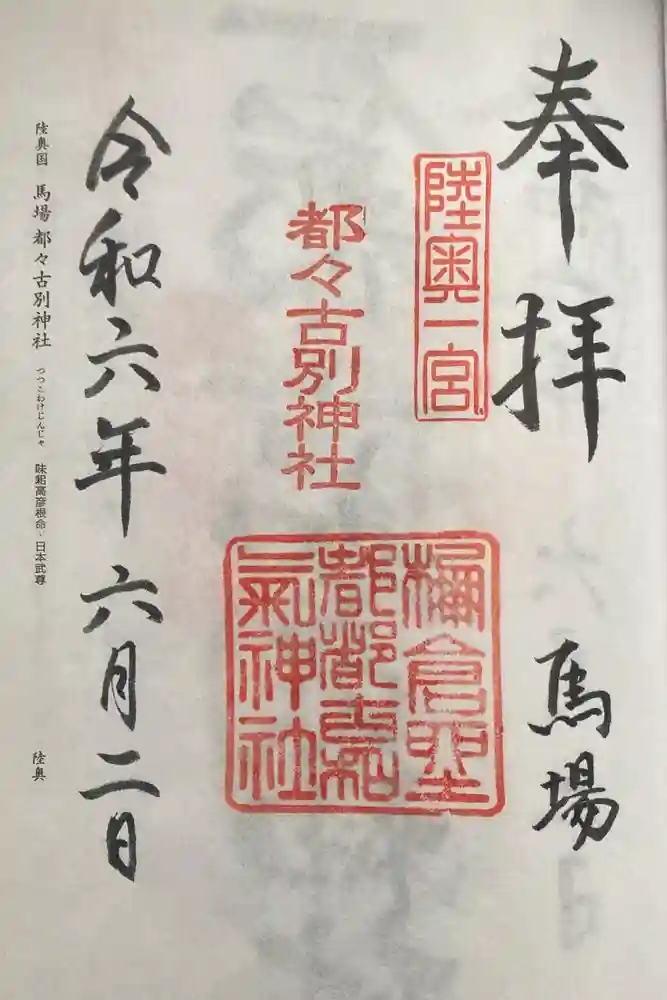 奉拝
馬場
陸奥一宮
都々古別神社
倉
都都古和
氣神社
令和六年六月二日
陸奥国 馬場 都々古別神社 つつこわけじんじゃ 味耜高彦根命・日本武尊 陸奥